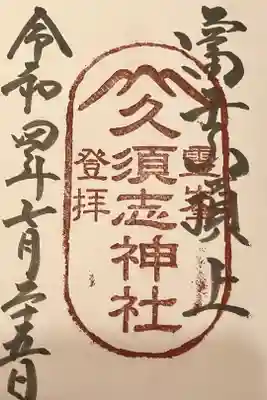 富士山頂上
霊峯
久須志神社
登拝
令和四年七月二十五日